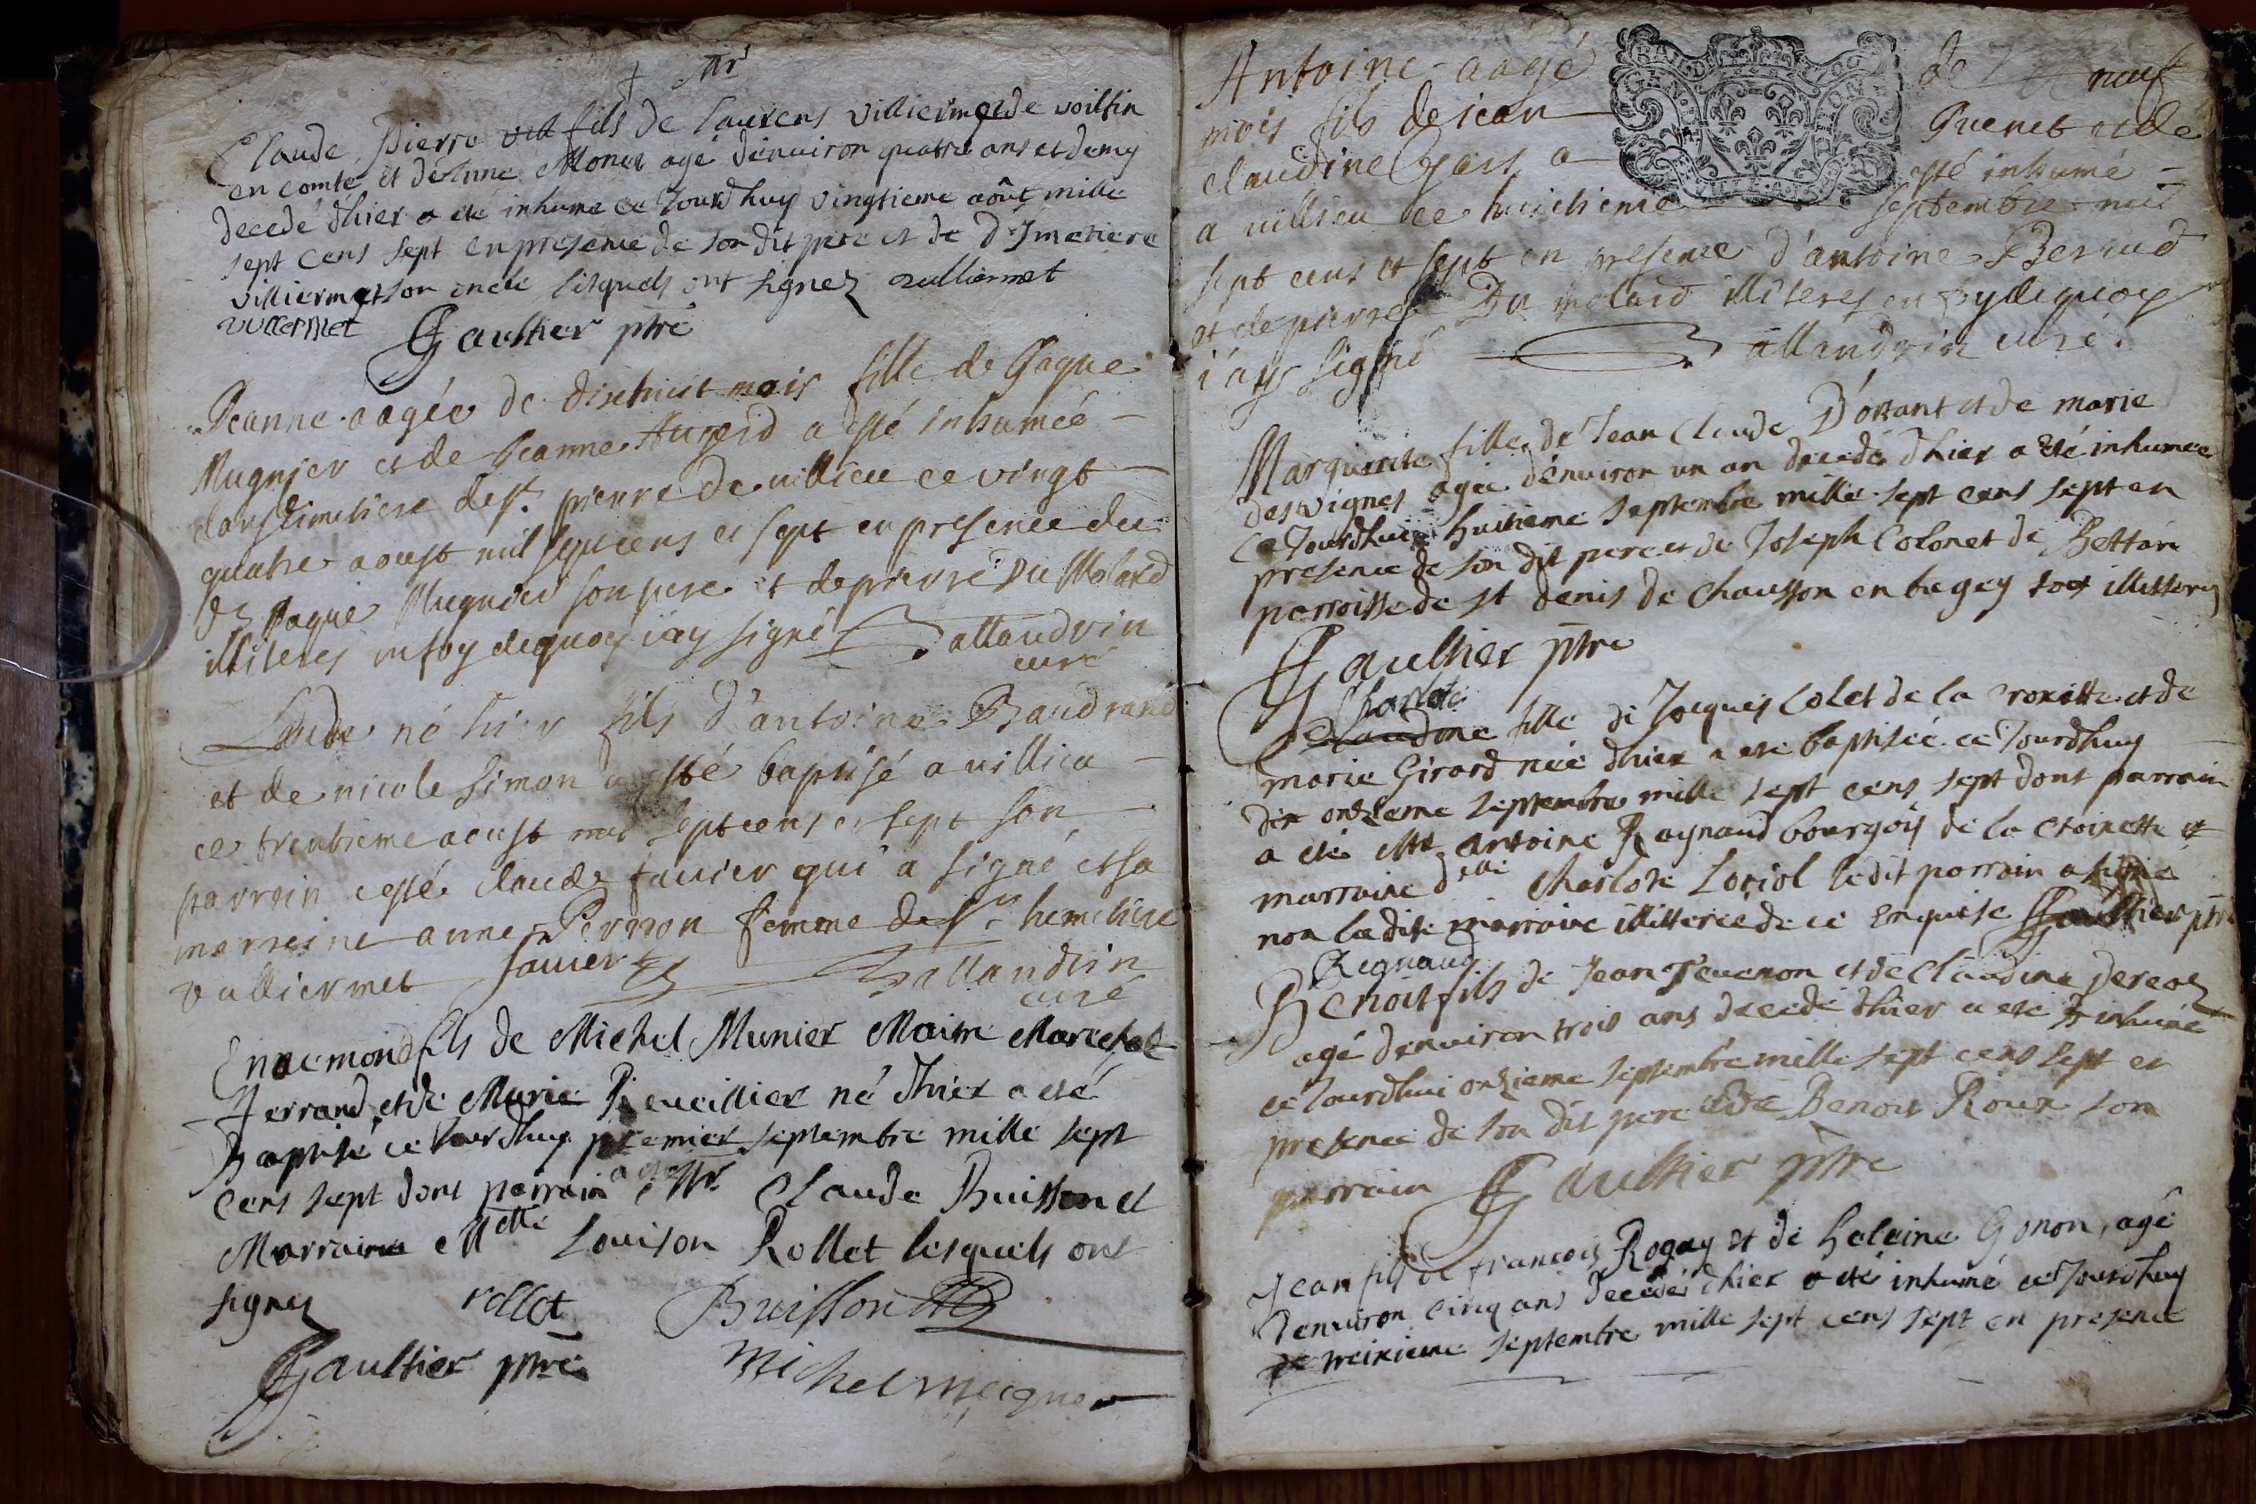 Mr
Claude Pierre fils de Laurens Villiermet de voissin
en comté et de Anne Monet agé denuiron quatre ans et demy
decedé d'hier a eté inhumé ce Jourdhuy vingtieme août mille
sept cens sept en presence de son dit pere et de
villiermet son oncle lesquels ont signez vulliermet
vulliermet Gaultier ptre
Jeanne aagée de dixhuict mois fille de Jaque
Mugnier et de Jeanne a esté inhumée
dans cimetiere de st. pierre de villieu ce vingt
quatre aoust mil sept cens et sept en presence du
dt Jaque Mugnier son pere et de pierre Du Molard
illiteres en foy dequoy i'ay signé allandrin
curé
Claude né hier fils d'antoine Baudrand
et de nicole Simon a esté baptisé a villieu
ce trentieme aoust mil sept cens et sept son
parrein a esté claude favier qui a signé et sa
marreine anne Pernon femme de
vulliermet favier allandrin
curé
Ennemond fils de Michel Munier Maitre Marechal
ferrand et de Marie né d'hier a eté
Baptisé ce Jourdhuy premier septembre mille sept
cens sept dont parrain a eté Mr. Claude Buisson et
Marraine Melle Louison Rollet lesquels ont
signez rollet Buisson
Gaultier ptre Michel mugnier
Antoine aagé de neuf
mois fils de iean Guenet et de
claudine Gars a esté inhumé
a villieu ce huictieme septembre mil
sept cens et sept en presence d'antoine Beraud
et de pierre Du molard illiteres en foy dequoy
i'ay signé allandrin curé.
Marguerite fille de Jean Claude D'ortant et de marie
desvignes agée d'enuiron un an decedé d'hier a eté inhumée
ce Jourdhuy huitieme septembre mille sept cens sept en
presence de son dit pere et de Joseph Colonet de Bettan
parroisse de st denis de Chausson en bugey tous illitterez
Gaultier ptre
Charlote
Claudine fille de Jacques Colet de la croisette et de
marie Girard née d'hier a eté baptisée ce Jourdhuy
dix onzieme septembre mille sept cens sept dont parrain
a eté Mr Antoine Raynaud bourgois de la croisette et
marraine delle Charlote Loriol le dit parrain a signé
non la dite marraine illitterée de ce Enquise Gaultier ptre
Regnaud
Benoit fils de Jean Teuenon et de Claudine
agé denuiron trois ans decedé d'hier a eté Inhumé
ce Jourdhui onzieme septembre mille sept cens sept en
presence de son dit pere et de Benoit Roux son
parrain Gaultier ptre
Jean fils de francois Rogay et de helaine Gonon, agé
denuiron cinq ans decedé d'hier a eté inhumé ce Jourdhuy
treizieme septembre mille sept cens sept en presence